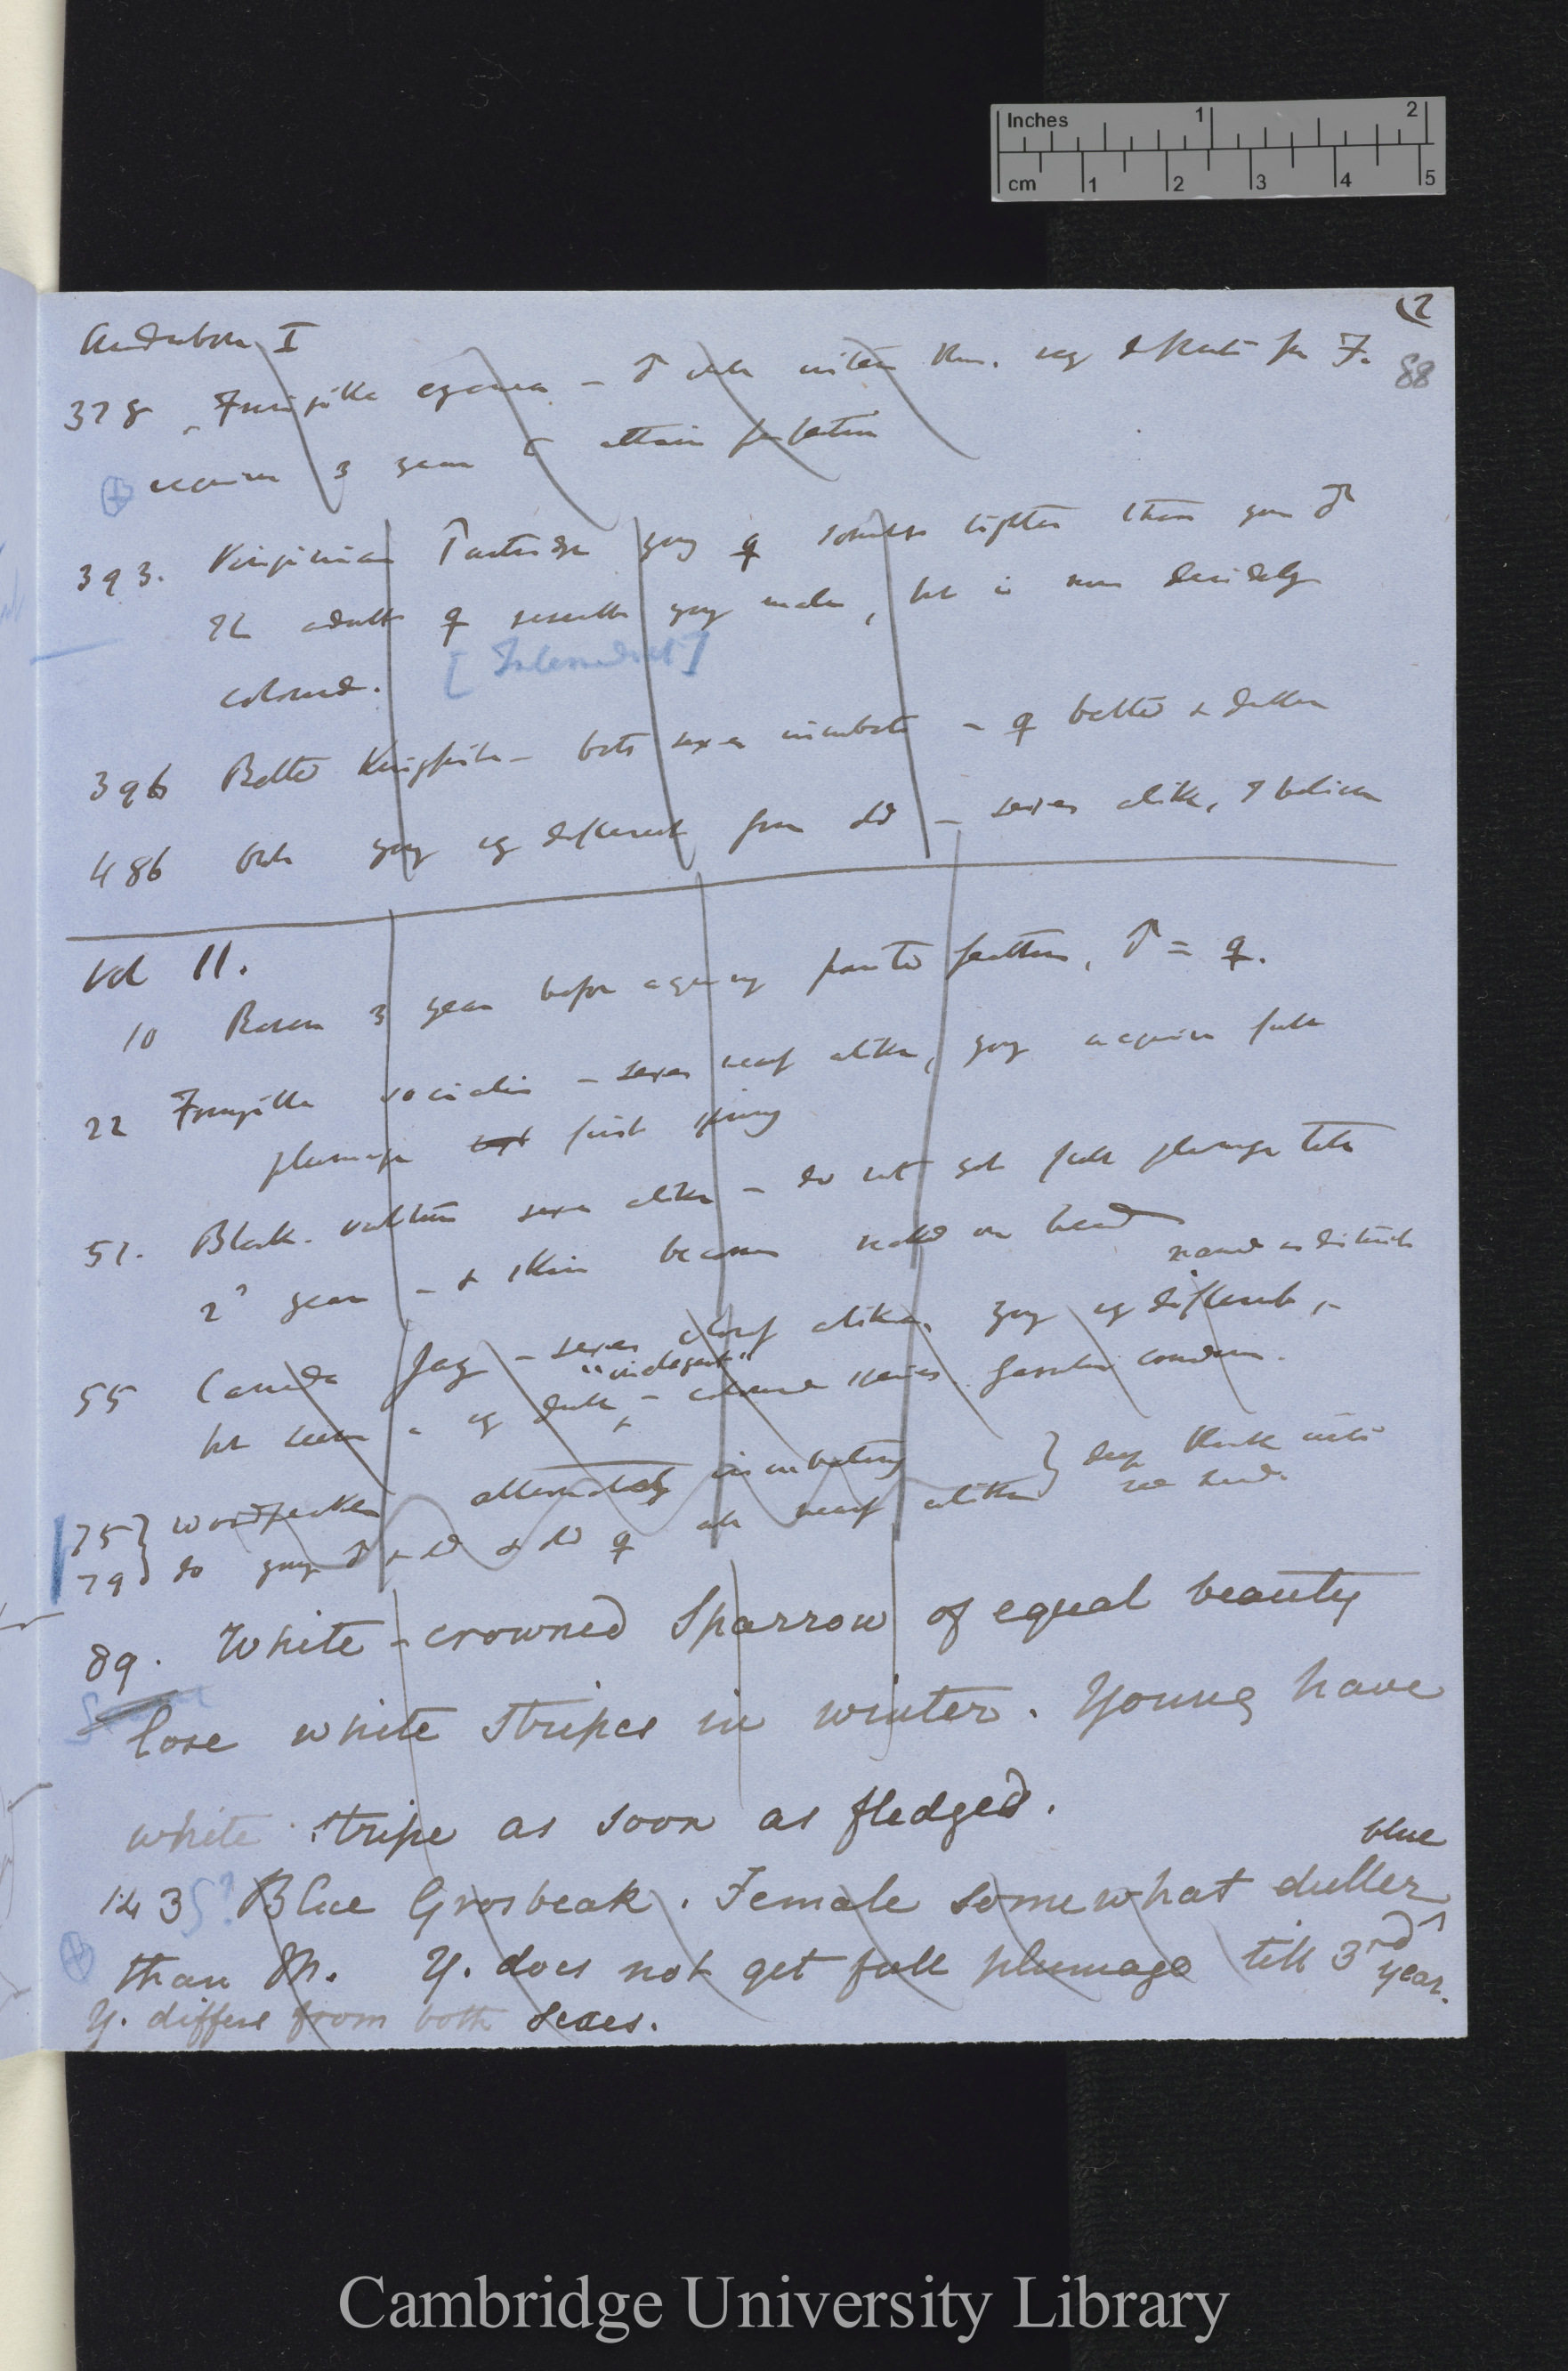 Inches 1 2
cm 1 2 3 4 5
(2
Audubon I
88
378 Fringilla cyanea — ♂ differ from F.
requires 3 years to attain perfection
393. Virginian Partridge young ♀ somewhat lighter than young ♂
The adult ♀ resembles young male, but is more decidedly
coloured. [Intermediate]
396 Belted Kingfisher — both sexes incubate — ♀ belted & duller
486 Ibis young v different from old — sexes alike, I believe
Vol II.
10 Raven 3 years before acquiring perfect feathers, ♂ = ♀.
22 Fringilla socialis — sexes nearly alike, young acquire full
plumage first spring
51. Black vulture sexes alike — do not get full plumage till
2d year — & skin becomes naked on head
named as distinct
55 Canada Jay — sexes closely alike. young vy different, —
"inelegant"
but seem vy dull, — coloured species. Garrulus
75 } woodpecker alternately incubating } see back
79 } do young ♂ & ♀ & old ♀ all nearly alike
89. White-crowned Sparrow of equal beauty
lose white stripes in winter. Young have
white stripe as soon as fledged.
blue
143 S? Blue Grosbeak. Female somewhat duller
than M. Y. does not get full plumage till 3rd year.
Y. differs from both sexes.
Cambridge University Library